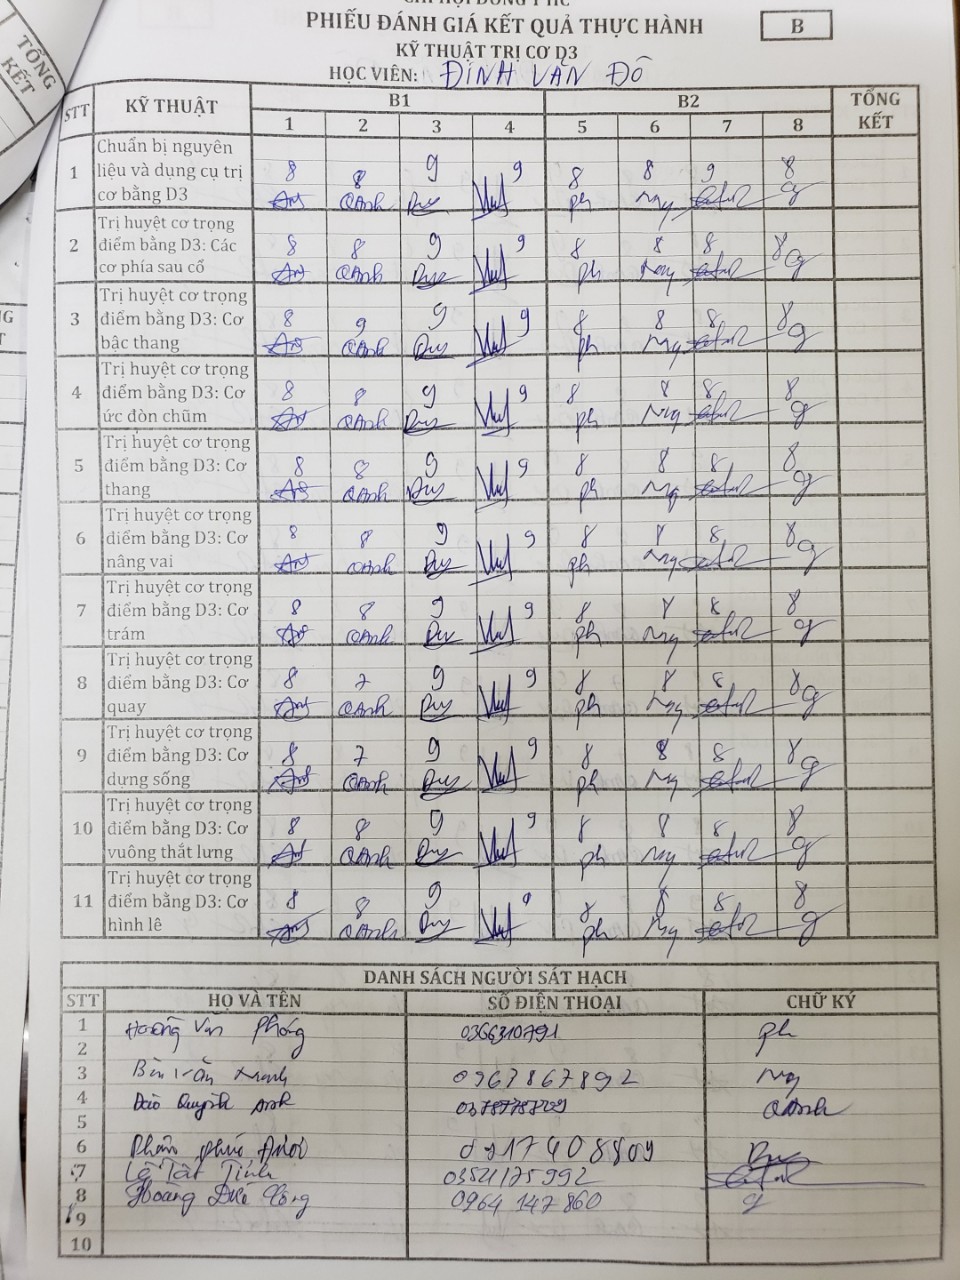 TỔNG
KẾT
PHIẾU ĐÁNH GIÁ KẾT QUẢ THỰC HÀNH
B
KỸ THUẬT TRỊ CƠ D3
HỌC VIÊN: ĐINH VĂN ĐÔ
STT KỸ THUẬT B1 B2 TỔNG KẾT
1 2 3 4 5 6 7 8
1 Chuẩn bị nguyên liệu và dụng cụ trị cơ bằng D3 8 8 9 9 8 8 9 8
QAnh Duy ph Ng
2 Trị huyệt cơ trọng điểm bằng D3: Các cơ phía sau cổ 8 8 9 9 8 8 8 8
QAnh Duy ph Ng
3 Trị huyệt cơ trọng điểm bằng D3: Cơ bậc thang 8 9 9 9 8 8 8 8
QAnh Duy ph Ng
4 Trị huyệt cơ trọng điểm bằng D3: Cơ ức đòn chũm 8 8 9 9 8 8 8 8
QAnh Duy ph Ng
5 Trị huyệt cơ trọng điểm bằng D3: Cơ thang 8 8 9 9 8 8 8 8
QAnh Duy ph Ng
6 Trị huyệt cơ trọng điểm bằng D3: Cơ nâng vai 8 8 9 9 8 8 8 8
QAnh Duy ph Ng
7 Trị huyệt cơ trọng điểm bằng D3: Cơ trám 8 8 9 9 8 8 8 8
QAnh Duy ph Ng
8 Trị huyệt cơ trọng điểm bằng D3: Cơ quay 8 7 9 9 8 8 8 8
QAnh Duy ph Ng
9 Trị huyệt cơ trọng điểm bằng D3: Cơ dựng sống 8 7 9 9 8 8 8 8
QAnh Duy ph Ng
10 Trị huyệt cơ trọng điểm bằng D3: Cơ vuông thắt lưng 8 8 9 9 8 8 8 8
QAnh Duy ph Ng
11 Trị huyệt cơ trọng điểm bằng D3: Cơ hình lê 8 8 9 9 8 8 8 8
QAnh Duy ph Ng
DANH SÁCH NGƯỜI SÁT HẠCH
STT HỌ VÀ TÊN SỐ ĐIỆN THOẠI CHỮ KÝ
1 Hoàng Văn Phóng 0366310791 ph
2
3 Văn 0967867892 Ng
4 Đào Quỳnh Anh QAnh
5
6 Phạm Phúc 0917408809 Duy
7 Lê Tất Tính
8 Hoàng 0964 147 860
9
10